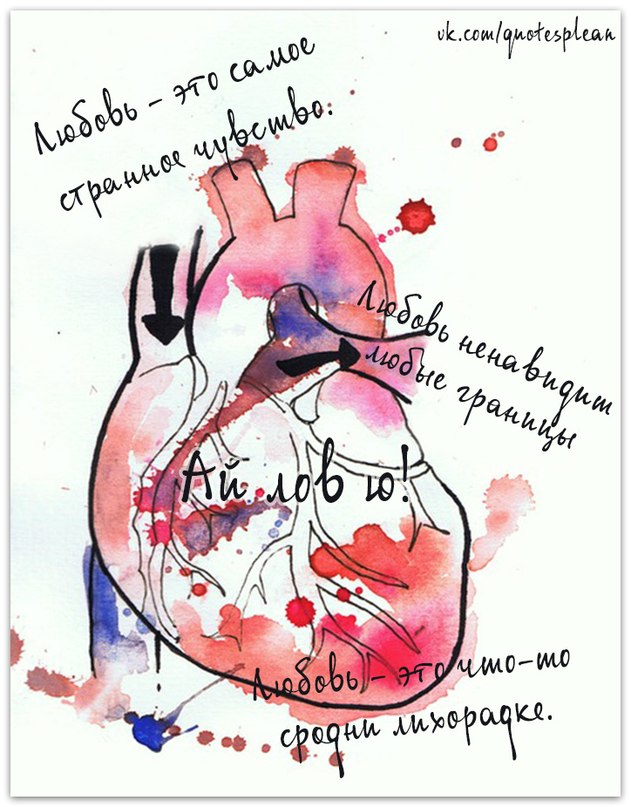 vk.com/quotesplean
Любовь - это самое
странное чувство.
Любовь ненавидит
любые границы
Ай лов ю!
Любовь - это что-то
сродни лихорадке.